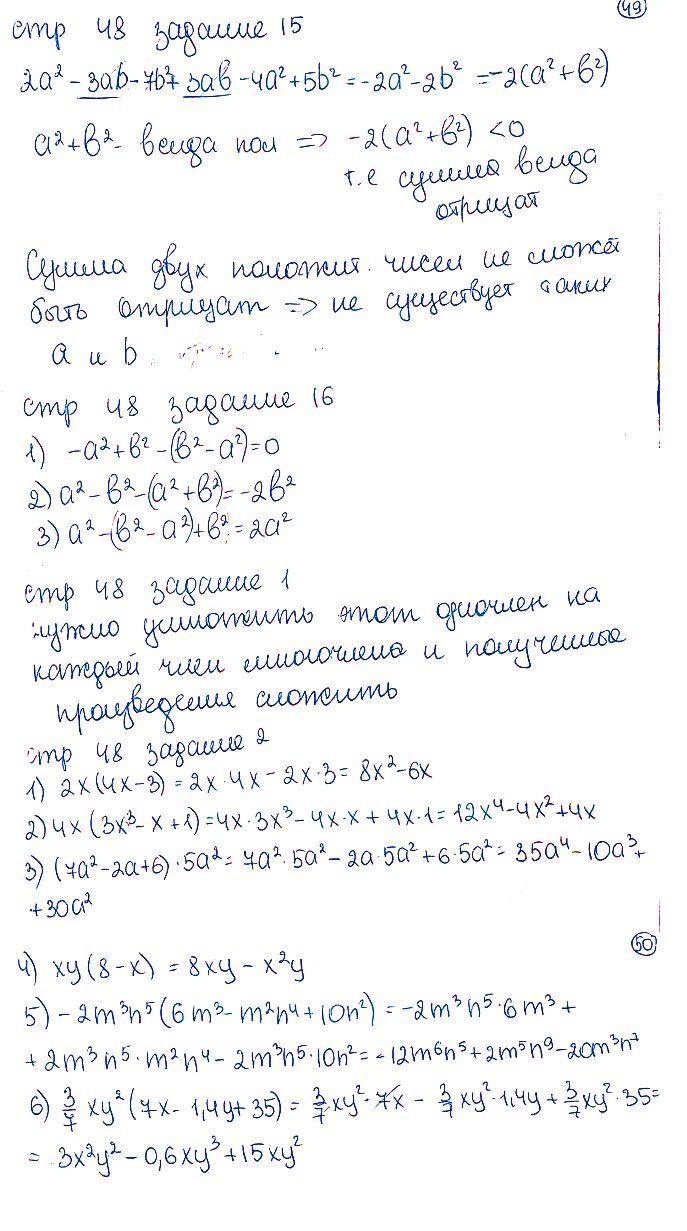 49
стр 48 задание 15
2a² - 3ab - 7b² + 3ab - 4a² + 5b² = -2a² - 2b² = -2(a² + b²)
a² + b² - всегда пол => -2(a² + b²) < 0
т.е сумма всегда
отрицат
Сумма двух положит. чисел не может
быть отрицат => не существует таких
a и b
стр 48 задание 16
1) -a² + b² - (b² - a²) = 0
2) a² - b² - (a² + b²) = -2b²
3) a² - (b² - a²) + b² = 2a²
стр 48 задание 1
нужно умножить этот одночлен на
каждый член многочлена и полученные
произведения сложить
стр 48 задание 2
1) 2x(4x-3) = 2x·4x - 2x·3 = 8x² - 6x
2) 4x(3x³ - x + 1) = 4x·3x³ - 4x·x + 4x·1 = 12x⁴ - 4x² + 4x
3) (7a² - 2a + 6)·5a² = 7a²·5a² - 2a·5a² + 6·5a² = 35a⁴ - 10a³ +
+ 30a²
50
4) xy(8-x) = 8xy - x²y
5) -2m³n⁵(6m³ - m²n⁴ + 10n²) = -2m³n⁵·6m³ +
+ 2m³n⁵·m²n⁴ - 2m³n⁵·10n² = -12m⁶n⁵ + 2m⁵n⁹ - 20m³n⁷
6) 3/7 xy²(7x - 1,4y + 35) = 3/7 xy²·7x - 3/7 xy²·1,4y + 3/7 xy²·35 =
= 3x²y² - 0,6xy³ + 15xy²